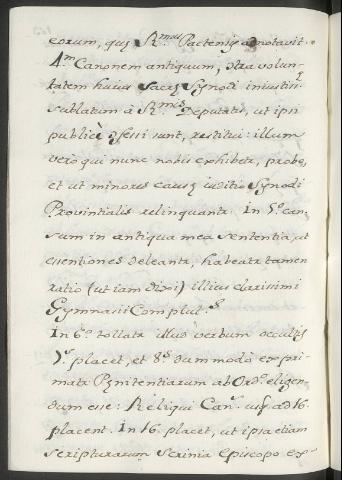 eorum, quę R.mus Pactensis adnotavit.
4.m Canonem antiquum, ctra volun-
tatem huius Sacrę Synodi iniustiss.e
sublatum à R.mis Deputatis, ut ipsi
publicè cfessi sunt, restitui: illum
vero qui nunc nobis exhibetr, probo,
et ut minores causę iuditio Synodi
Provintialis relinquantr. In 5.o can,
sum in antiqua mea sententia, ut
exentiones deleantr, habeatr tamen
ratio (ut iam dixi) illius clarissimi
Gymnasii Complut.s
In 6.o tollatr illud verbum occultis
7.s placet, et 8.s dummodo expri-
matr Pęnitentiarum ab Ord.o eligen-
dum esse: Reliqui Can.s usq ad 16.
placent. In 16. placet, ut ipsa etiam
scripturarum Scrinia Episcopo ex-